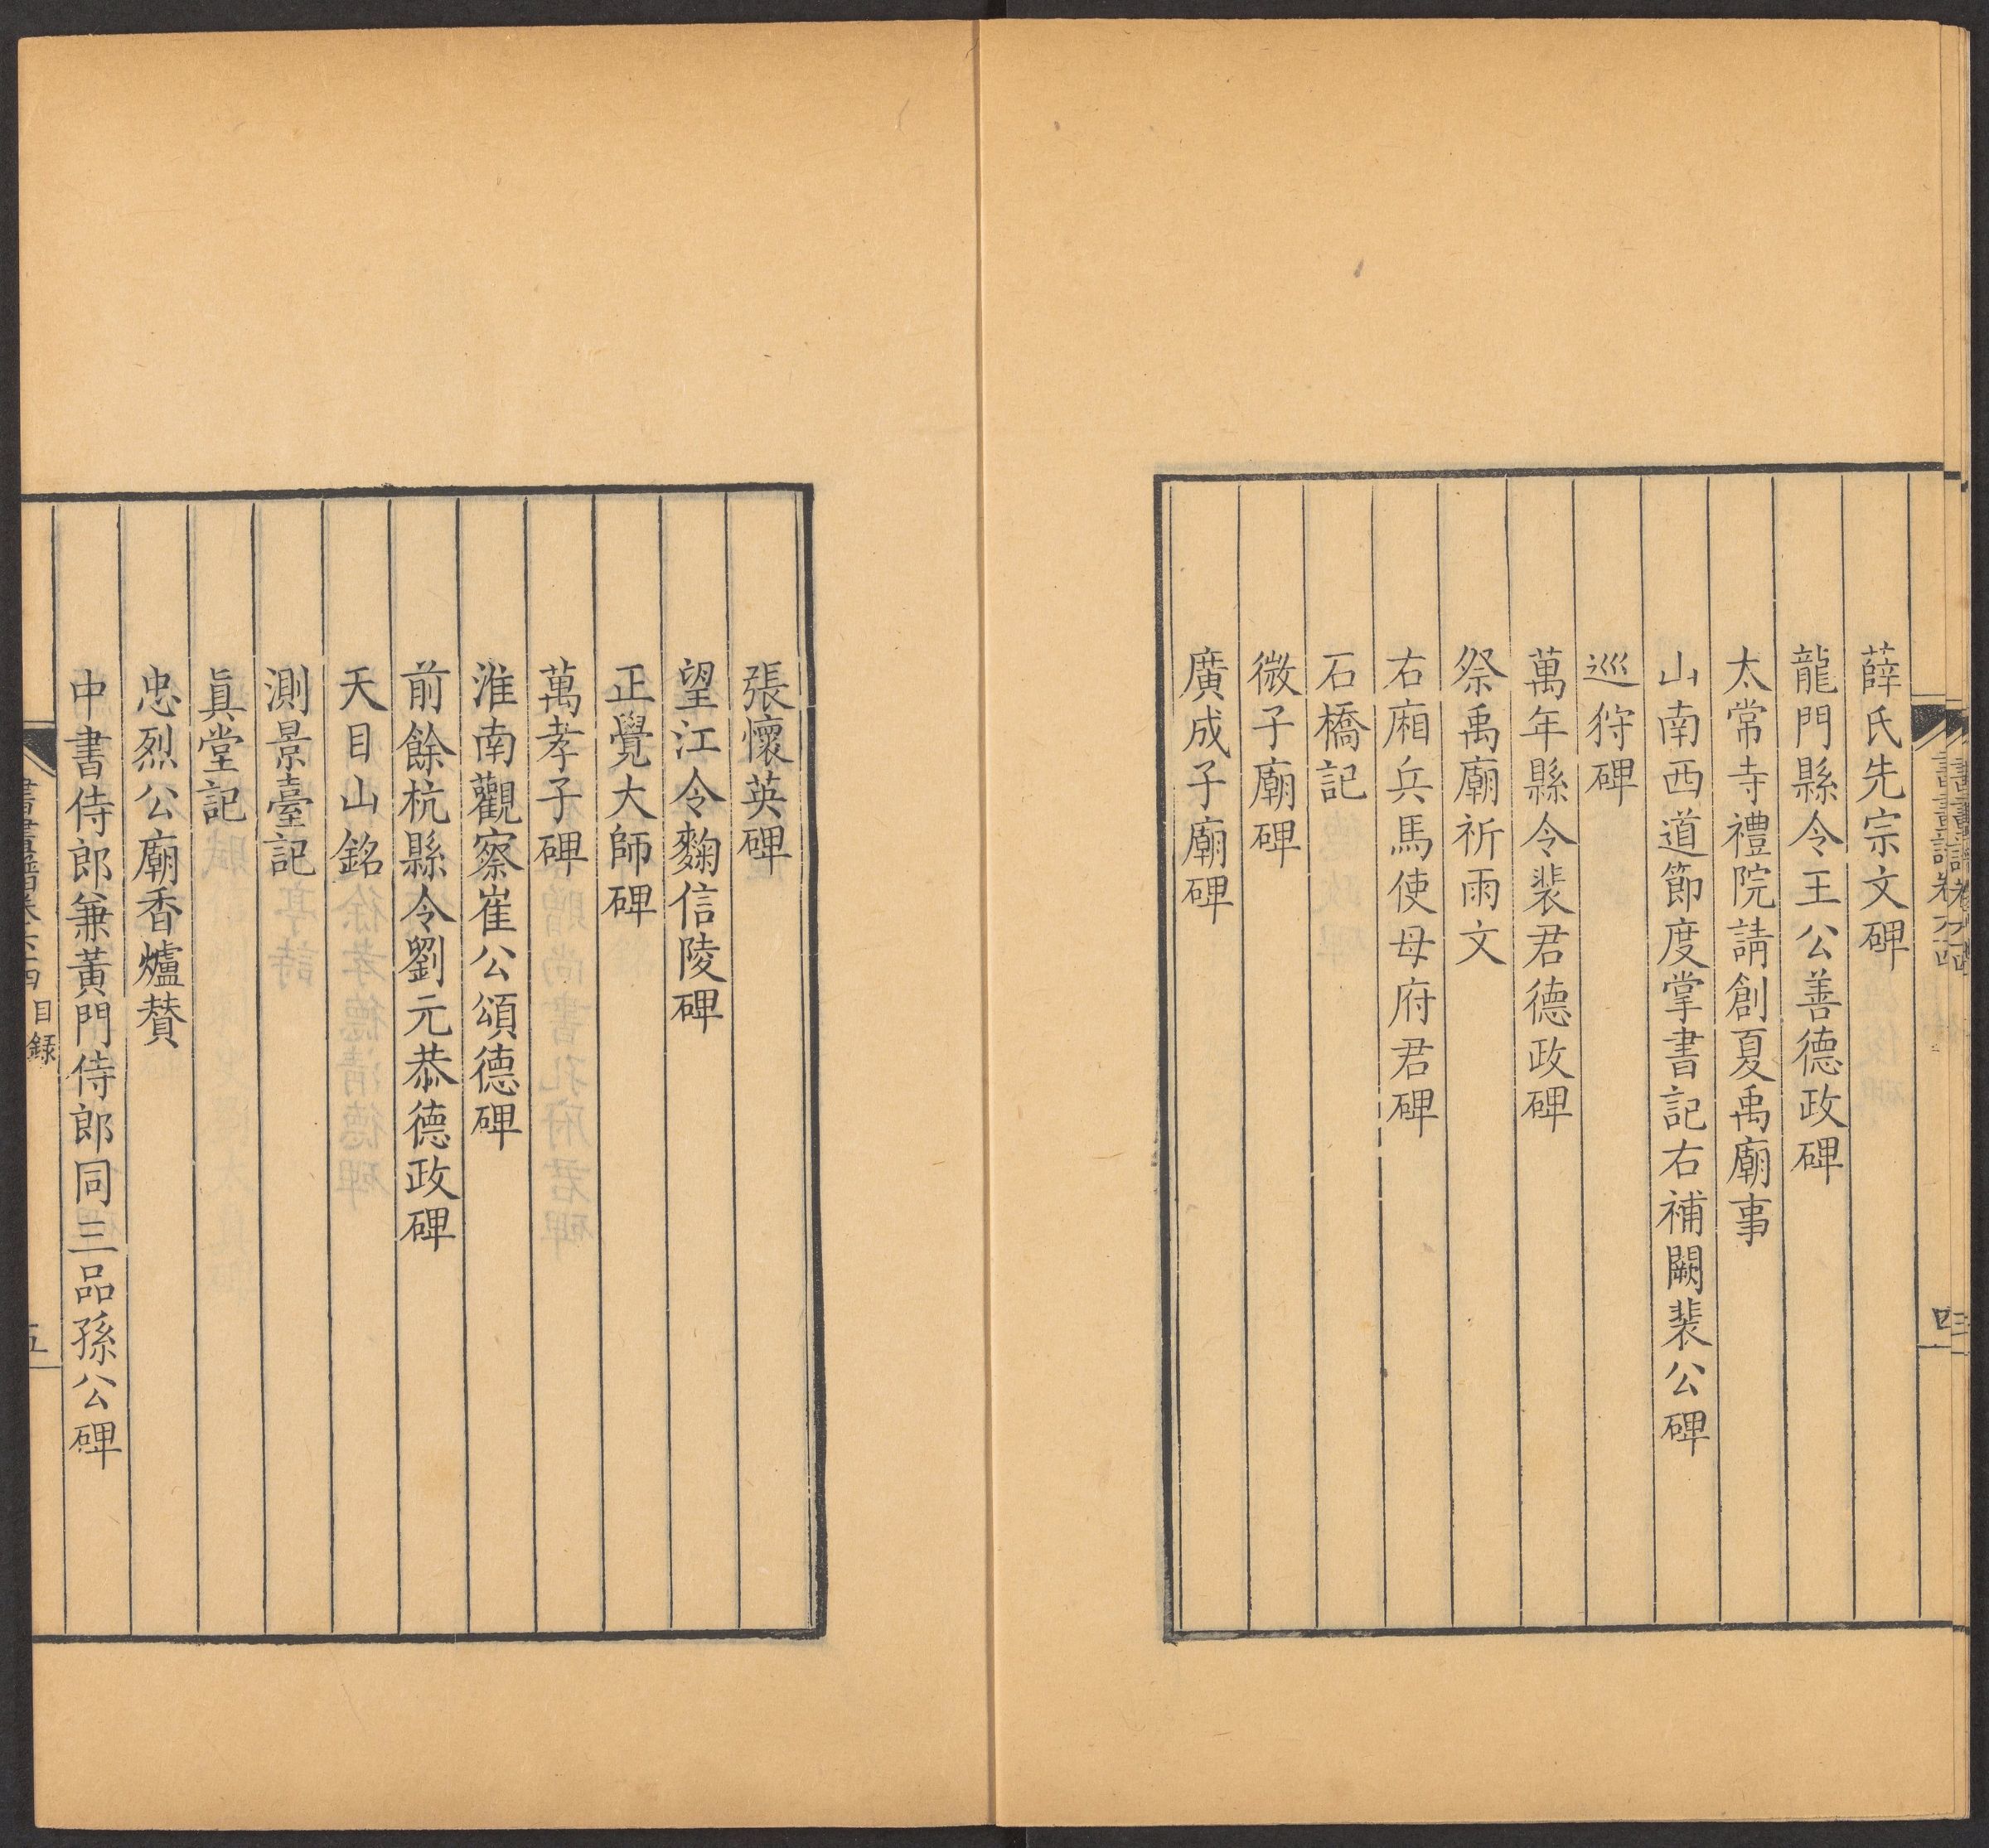 薛氏先宗文碑
龍門縣令王公善德政碑
太常寺禮院請創夏禹廟事
山南西道節度掌書記右補闕裴公碑
巡狩碑
萬年縣令裴君德政碑
祭禹廟祈雨文
右廂兵馬使母府君碑
石橋記
微子廟碑
廣成子廟碑
張懷英碑
望江令麴信陵碑
正覺大師碑
萬孝子碑
淮南觀察崔公頌德碑
前餘杭縣令劉元恭德政碑
天目山銘
測景臺記
眞堂記
忠烈公廟香爐贊
中書侍郎兼黃門侍郎同三品孫公碑
目錄
五